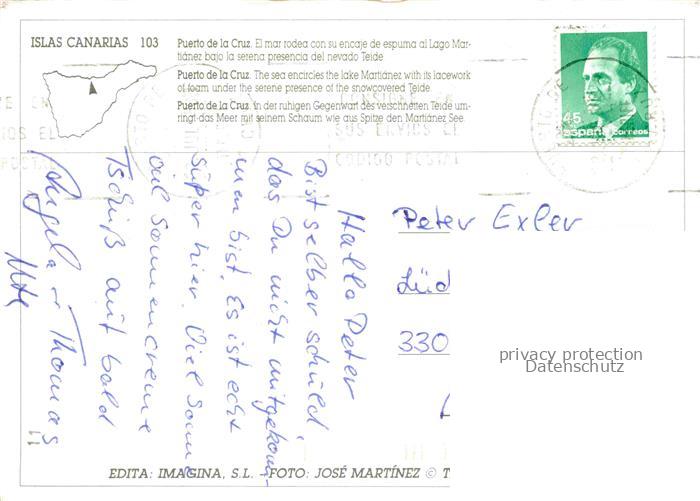 ISLAS CANARIAS 103
Puerto de la Cruz. El mar rodea con su encaje de espuma al Lago Mar-
tiánez bajo la serena presencia del nevado Teide
Puerto de la Cruz. The sea encircles the lake Martiánez with its lacework
of foam under the serene presence of the snowcovered Teide.
Puerto de la Cruz. In der ruhigen Gegenwart des verschneiten Teide um-
ringt das Meer mit seinem Schaum wie aus Spitze den Martiánez See.
45
españa correos
CONSIGNE EN
SUS ENVIOS EL
CODIGO POSTAL
Hallo Peter
Bist selber schuld,
das Du nicht mitgekom-
men bist. Es ist echt
süper hier. Viel Sonne
viel Sonnencreme
Tschüß auf bald
Angela + Thomas
Ute
Peter Exler
Lüd
330
privacy protection
Datenschutz
EDITA: IMAGINA, S.L. - FOTO: JOSÉ MARTÍNEZ © T